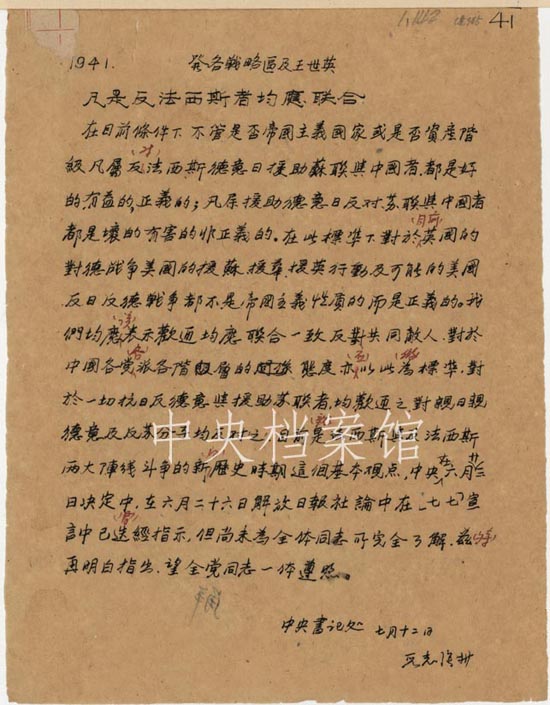 41
1941. 發各戰略區及王世英
凡是反法西斯者均應聯合
在目前條件下不管是否帝國主義國家或是否資產階
級凡屬反对法西斯德意日援助蘇联與中國者都是好
的有益的,正義的;凡屬援助德意日反对苏联與中國者
都是壞的有害的非正義的。在此標準下對於目前英國的
對德战争美國的援蘇援華援英行動及可能的美國
反日反德戰争都不是帝國主義性質的而是正義的。我
們均應表示歡迎均應联合一致反對共同敵人,對於
中國各党各派各階層的態度亦以此為標準,對
於一切抗日反德意與援助苏联者,均歡迎之對親日親
德意及反苏分子均反对之目前是法西斯與反法西斯
两大陣线斗争的新歷史時期這個基本观点,中央在六月廿三
日决定中,在六月二十六日解放日報社論中在「七七」宣
言中已迭經指示,但尚未為全体同志所完全了解,茲特
再明白指出,望全党同志一体遵照。
中央書记处 七月十二日
中央档案馆